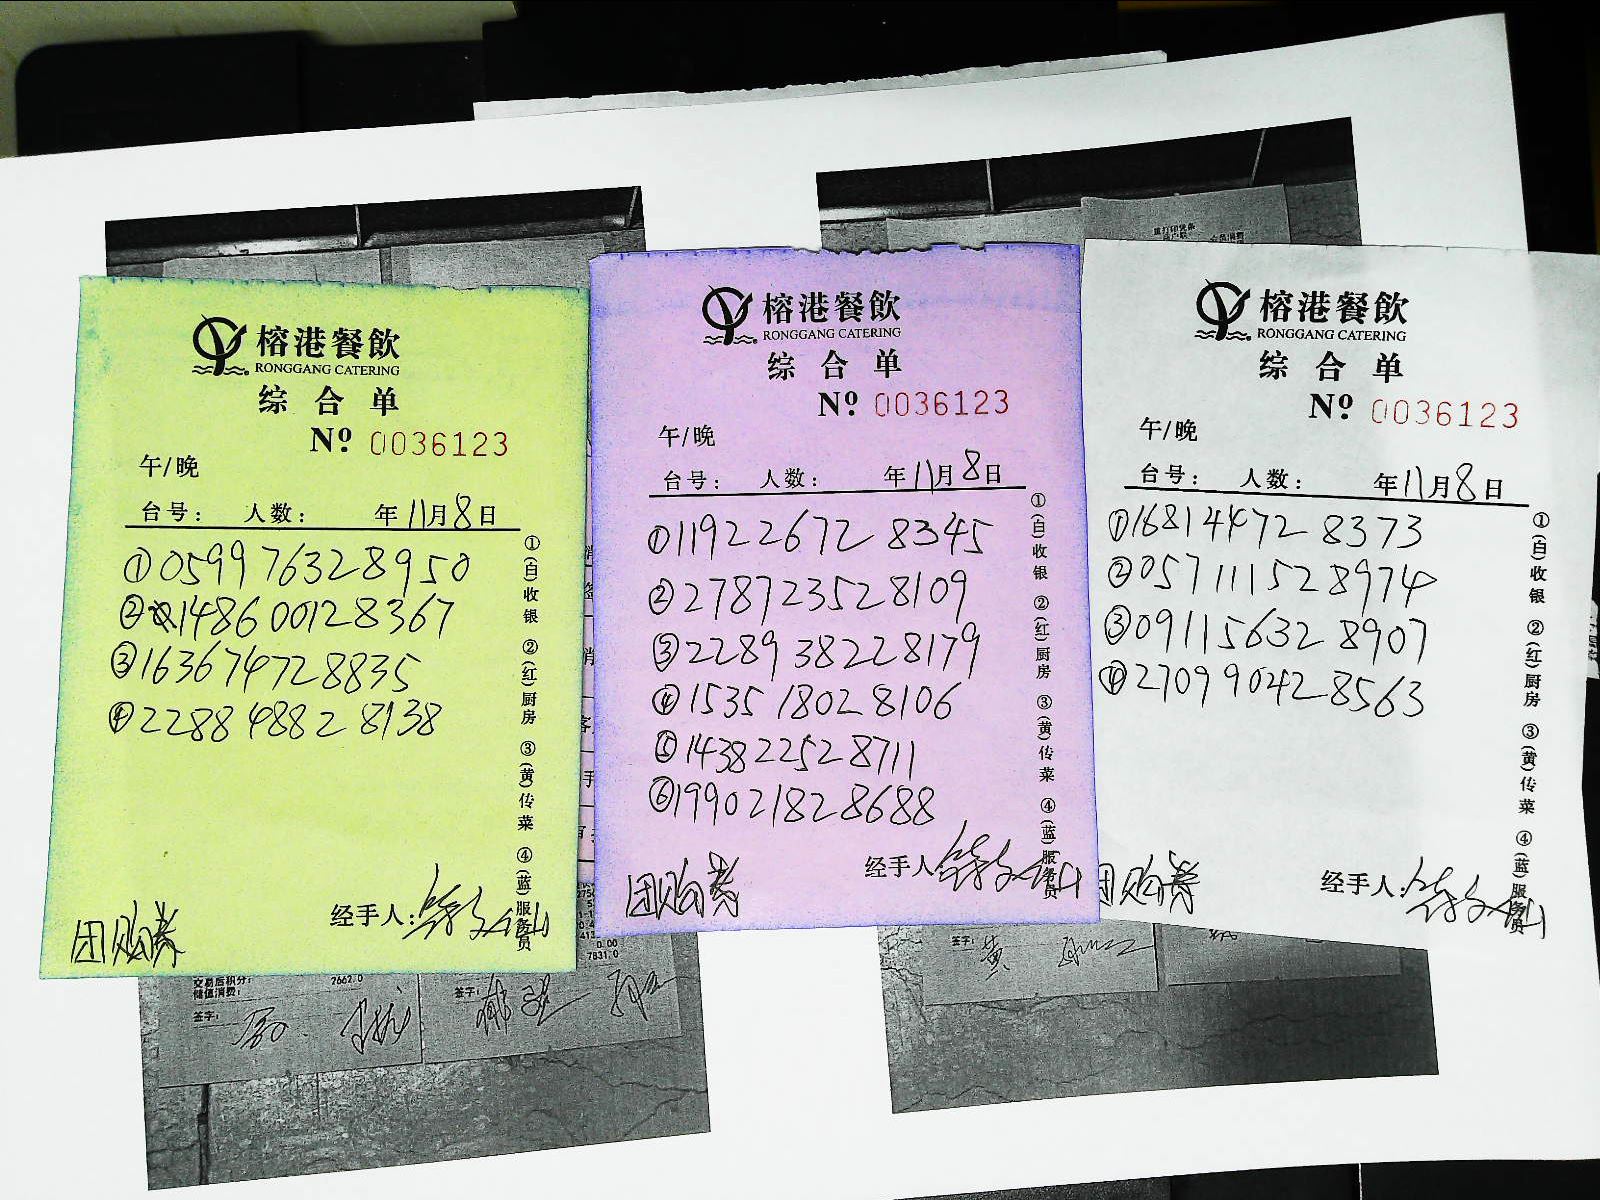 榕港餐飲
RONGGANG CATERING
综合单
Nº 0036123
午/晚
台号: 人数: 年11月8日
①059976328950
②148600128367
③163674728835
④228848828138
①(白)收银 ②(红)厨房 ③(黄)传菜 ④(蓝)服务员
团购券
经手人:
榕港餐飲
RONGGANG CATERING
综合单
Nº 0036123
午/晚
台号: 人数: 年11月8日
①119226728345
②278723528109
③228938228179
④153518028106
⑤143822528711
⑥199021828688
①(白)收银 ②(红)厨房 ③(黄)传菜 ④(蓝)服务员
团购券
经手人:
榕港餐飲
RONGGANG CATERING
综合单
Nº 0036123
午/晚
台号: 人数: 年11月8日
①168144728373
②057111528974
③091156328907
④270990428563
①(白)收银 ②(红)厨房 ③(黄)传菜 ④(蓝)服务员
团购券
经手人:
0.00
7831.0
交易后积分: 7662.0
储值消费:
签字:
签字:
签字: 黄